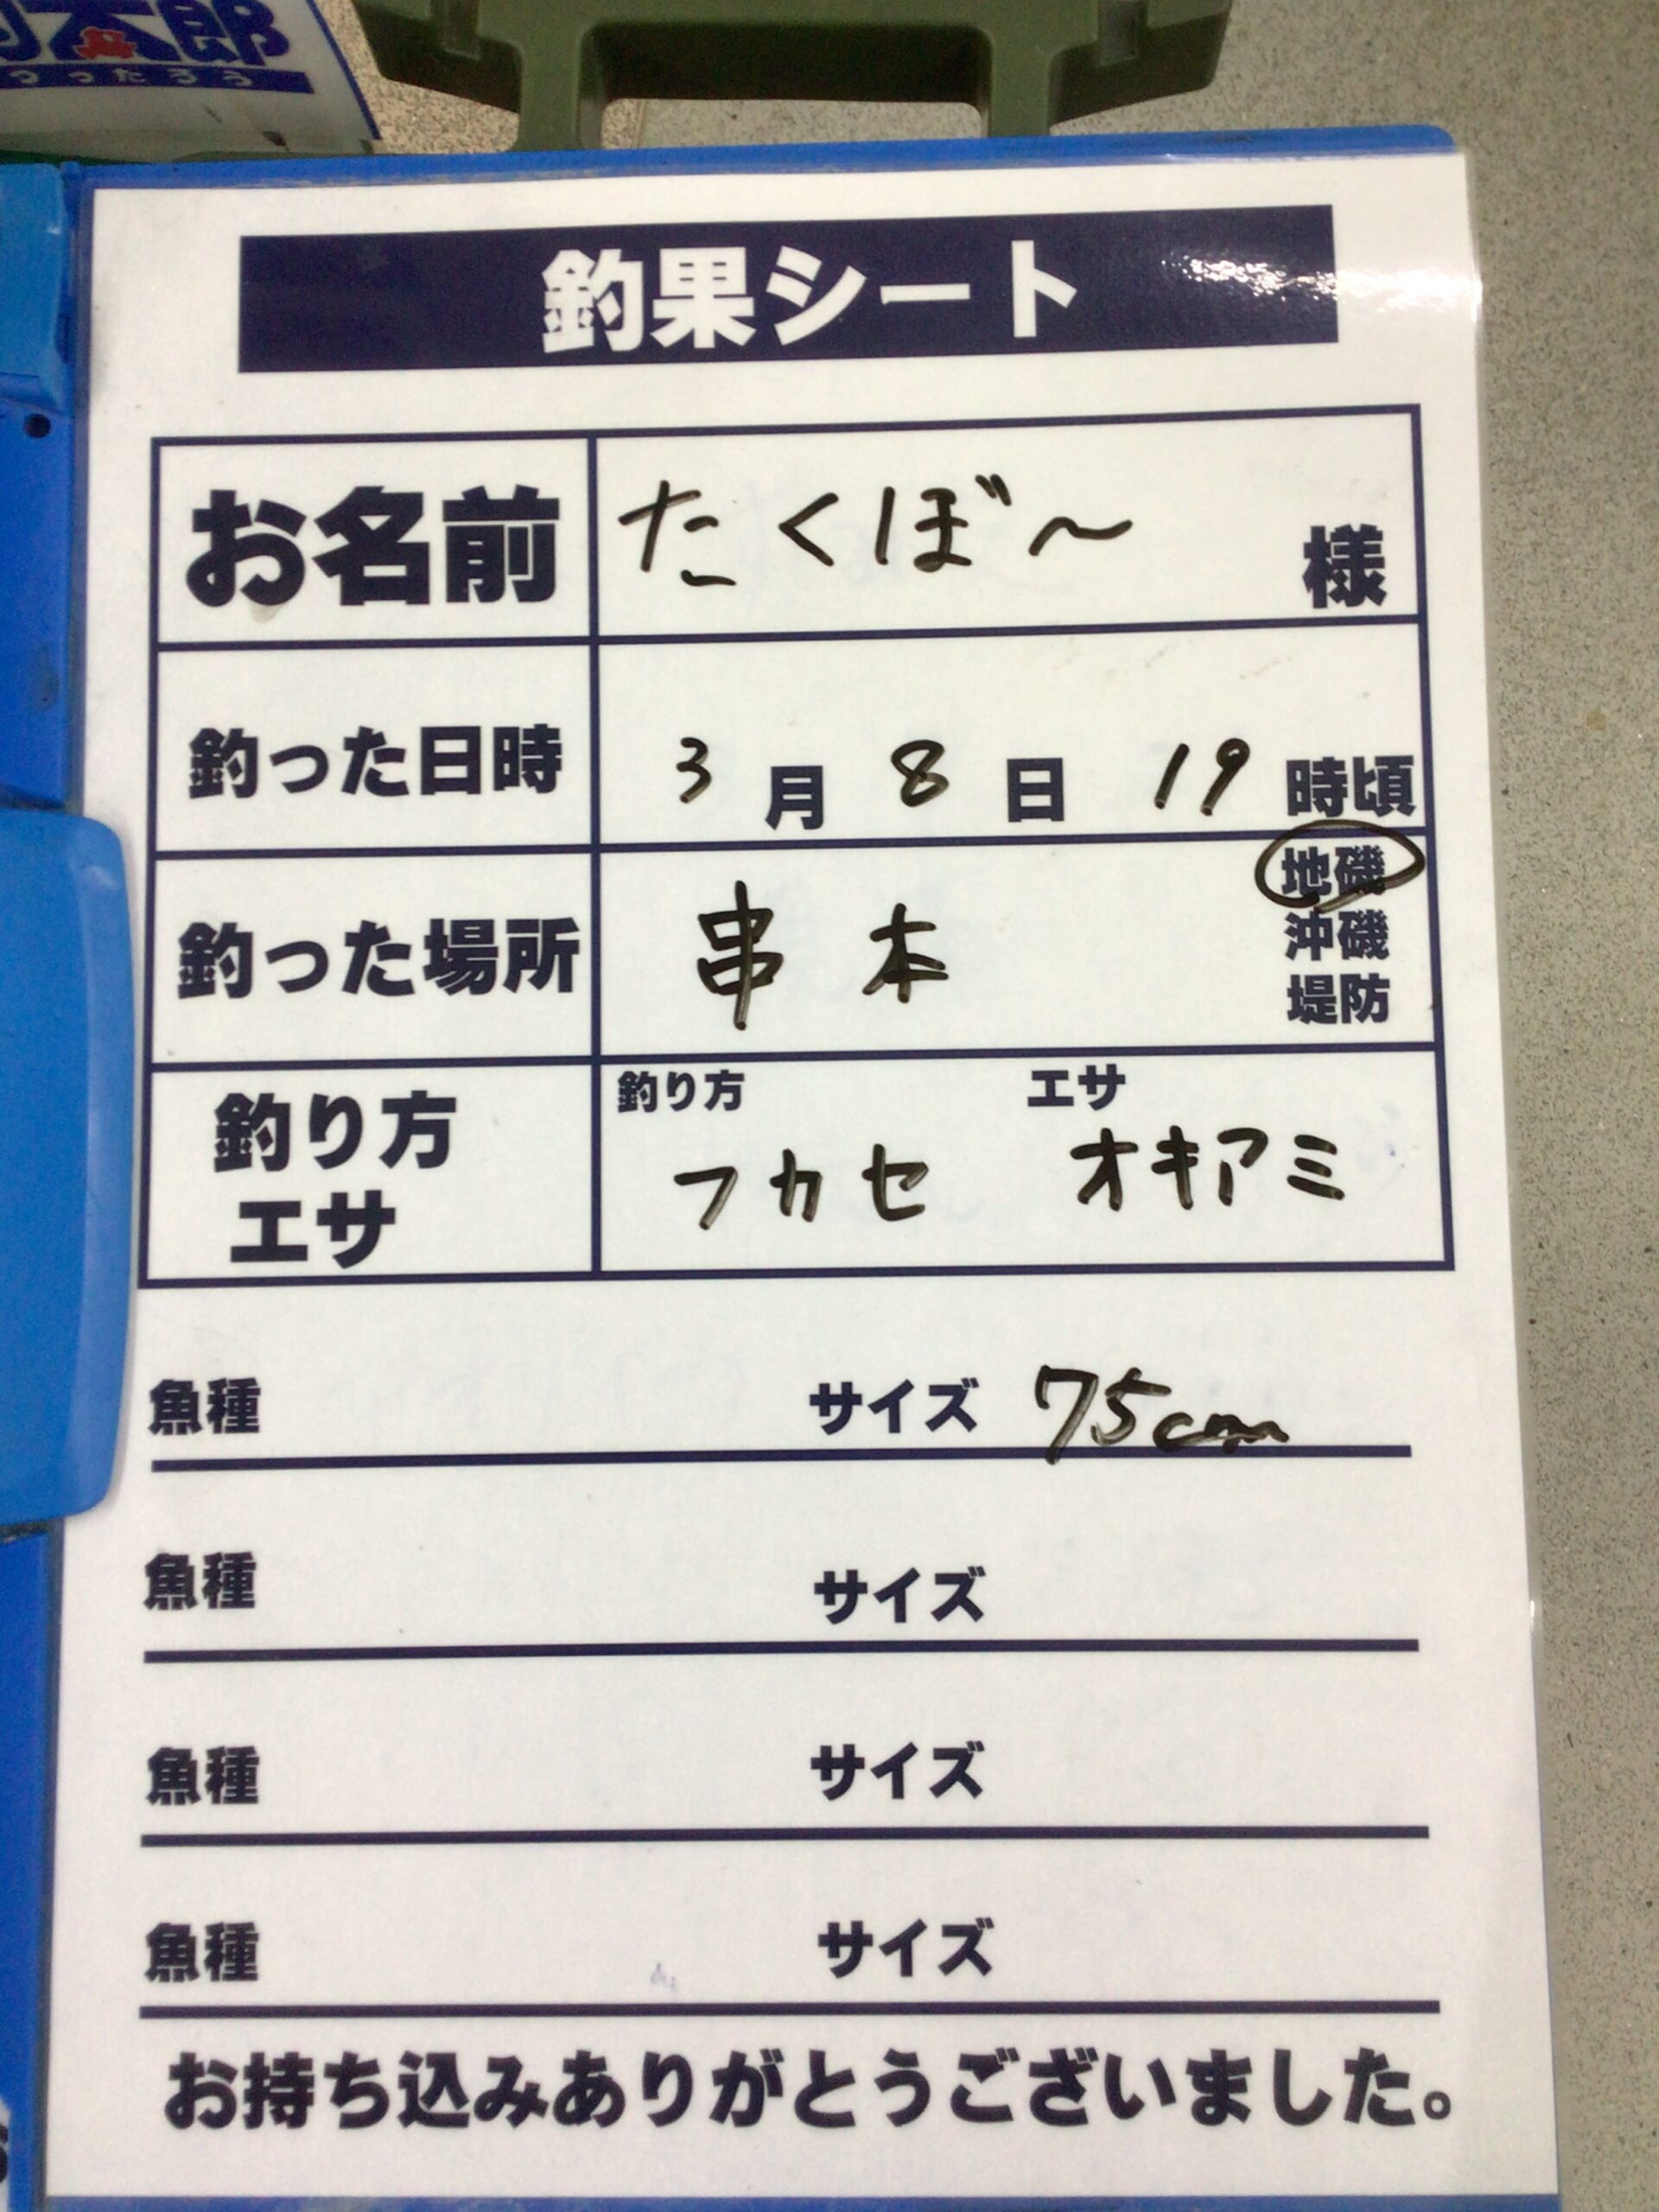 太郎
つったろう
釣果シート
お名前 たくぼ〜 様
釣った日時 3月8日19時頃
釣った場所 串本 地磯
沖磯
堤防
釣り方 エサ
釣り方
エサ
フカセ オキアミ
魚種 サイズ 75cm
魚種 サイズ
魚種 サイズ
魚種 サイズ
お持ち込みありがとうございました。